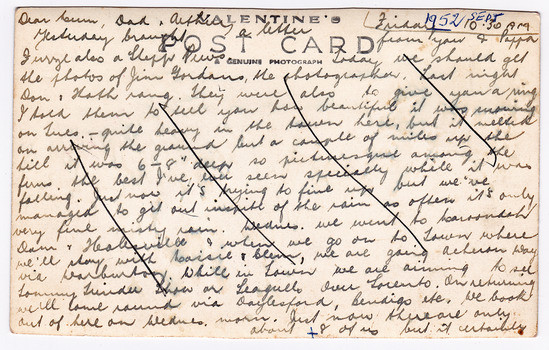 Dear Mum, Dad & Arthur, VALENTINE'S (Friday) 1952 SEPT 10.30 AM
Yesterday brought a letter from you &
POST CARD
I wrote also a GENUINE PHOTOGRAPH Today we should get
the photos of Jim Gordans, the photographer. Last night
Don & Kath rang. They were also to give you a ring
I told them to tell you how beautiful it was snowing
on Tues. - quite heavy in the town here, but it melted
on arriving the ground but a couple of miles up the
hill it was 6-8" deep so picturesque among the
ferns. The best I've ever seen specially while it was
falling. Just now it's trying to fine up but we've
managed to get out inspite of the rain as often it's only
very fine misty rain. Wednes. we went to Maroondah
Dam & Healesville & when we go on to Town where
we'll stay with & , we are going Acheron Way
via Warburton. While in Town we are aiming to see
Tommy Trinder Show or Seagulls Over Sorrento. On returning
we'll come round via Daylesford, Bendigo etc. We book
out of here on Wednes. morn. Just now there are only
about 8 of us but it certainly